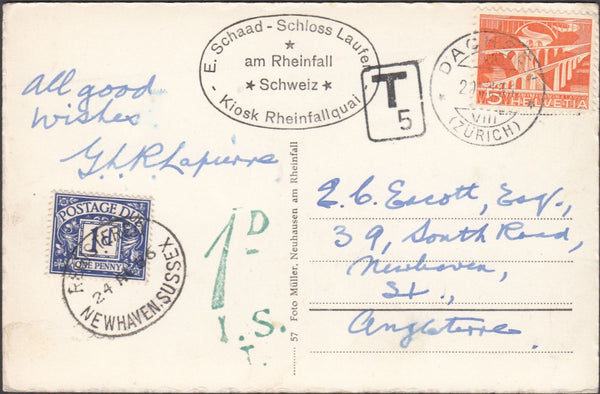 E. Schaad - Schloss Laufen
am Rheinfall
Schweiz
Kiosk Rheinfallquai
T
5
DACH
(ZÜRICH)
VIII
5
HELVETIA
All good
wishes
G.L.R. Lapierre
POSTAGE DUE
1d
ONE PENNY
24
NEWHAVEN. SUSSEX
1D
I.S.
T.
57 Foto Müller, Neuhausen am Rheinfall
L.C. Escott, Esq.,
39, South Road,
Newhaven,
SX.,
Angleterre